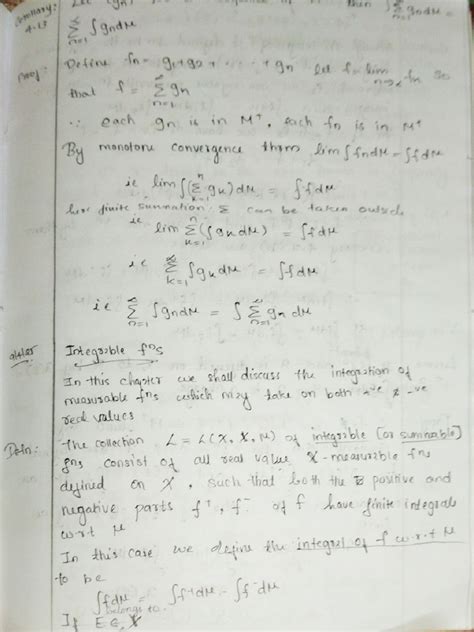 Corollary: Let (gn) in M+ then ∫Σ gn dμ =
4.13
∞Σn=1 ∫gn dμ
Proof: Define fn = g1+g2+ ..... + gn let f = lim n→∞ fn so
that f = ∞Σn=1 gn
∵ each gn is in M+, each fn is in M+
By monotone convergence thm, lim∫fn dμ = ∫f dμ
ie lim∫(nΣk=1 gk)dμ = ∫f dμ
here finite summation Σ can be taken outside
ie lim nΣk=1 (∫gk dμ) = ∫f dμ
ie ∞Σk=1 ∫gk dμ = ∫f dμ
ie ∞Σn=1 ∫gn dμ = ∫ ∞Σn=1 gn dμ
Integrable fns
In this chapter we shall discuss the integration of
measurable fns which may take on both +ve & -ve
real values
Defn: The collection L = L(X, X, μ) of integrable (or summable)
fns consist of all real value X-measurable fns
defined on X, such that both the positive and
negative parts f+, f- of f have finite integrals
w.r.t μ
In this case we define the integral of f w.r.t μ
to be
∫f dμ = ∫f+ dμ - ∫f- dμ
belongs to
If E ∈ X